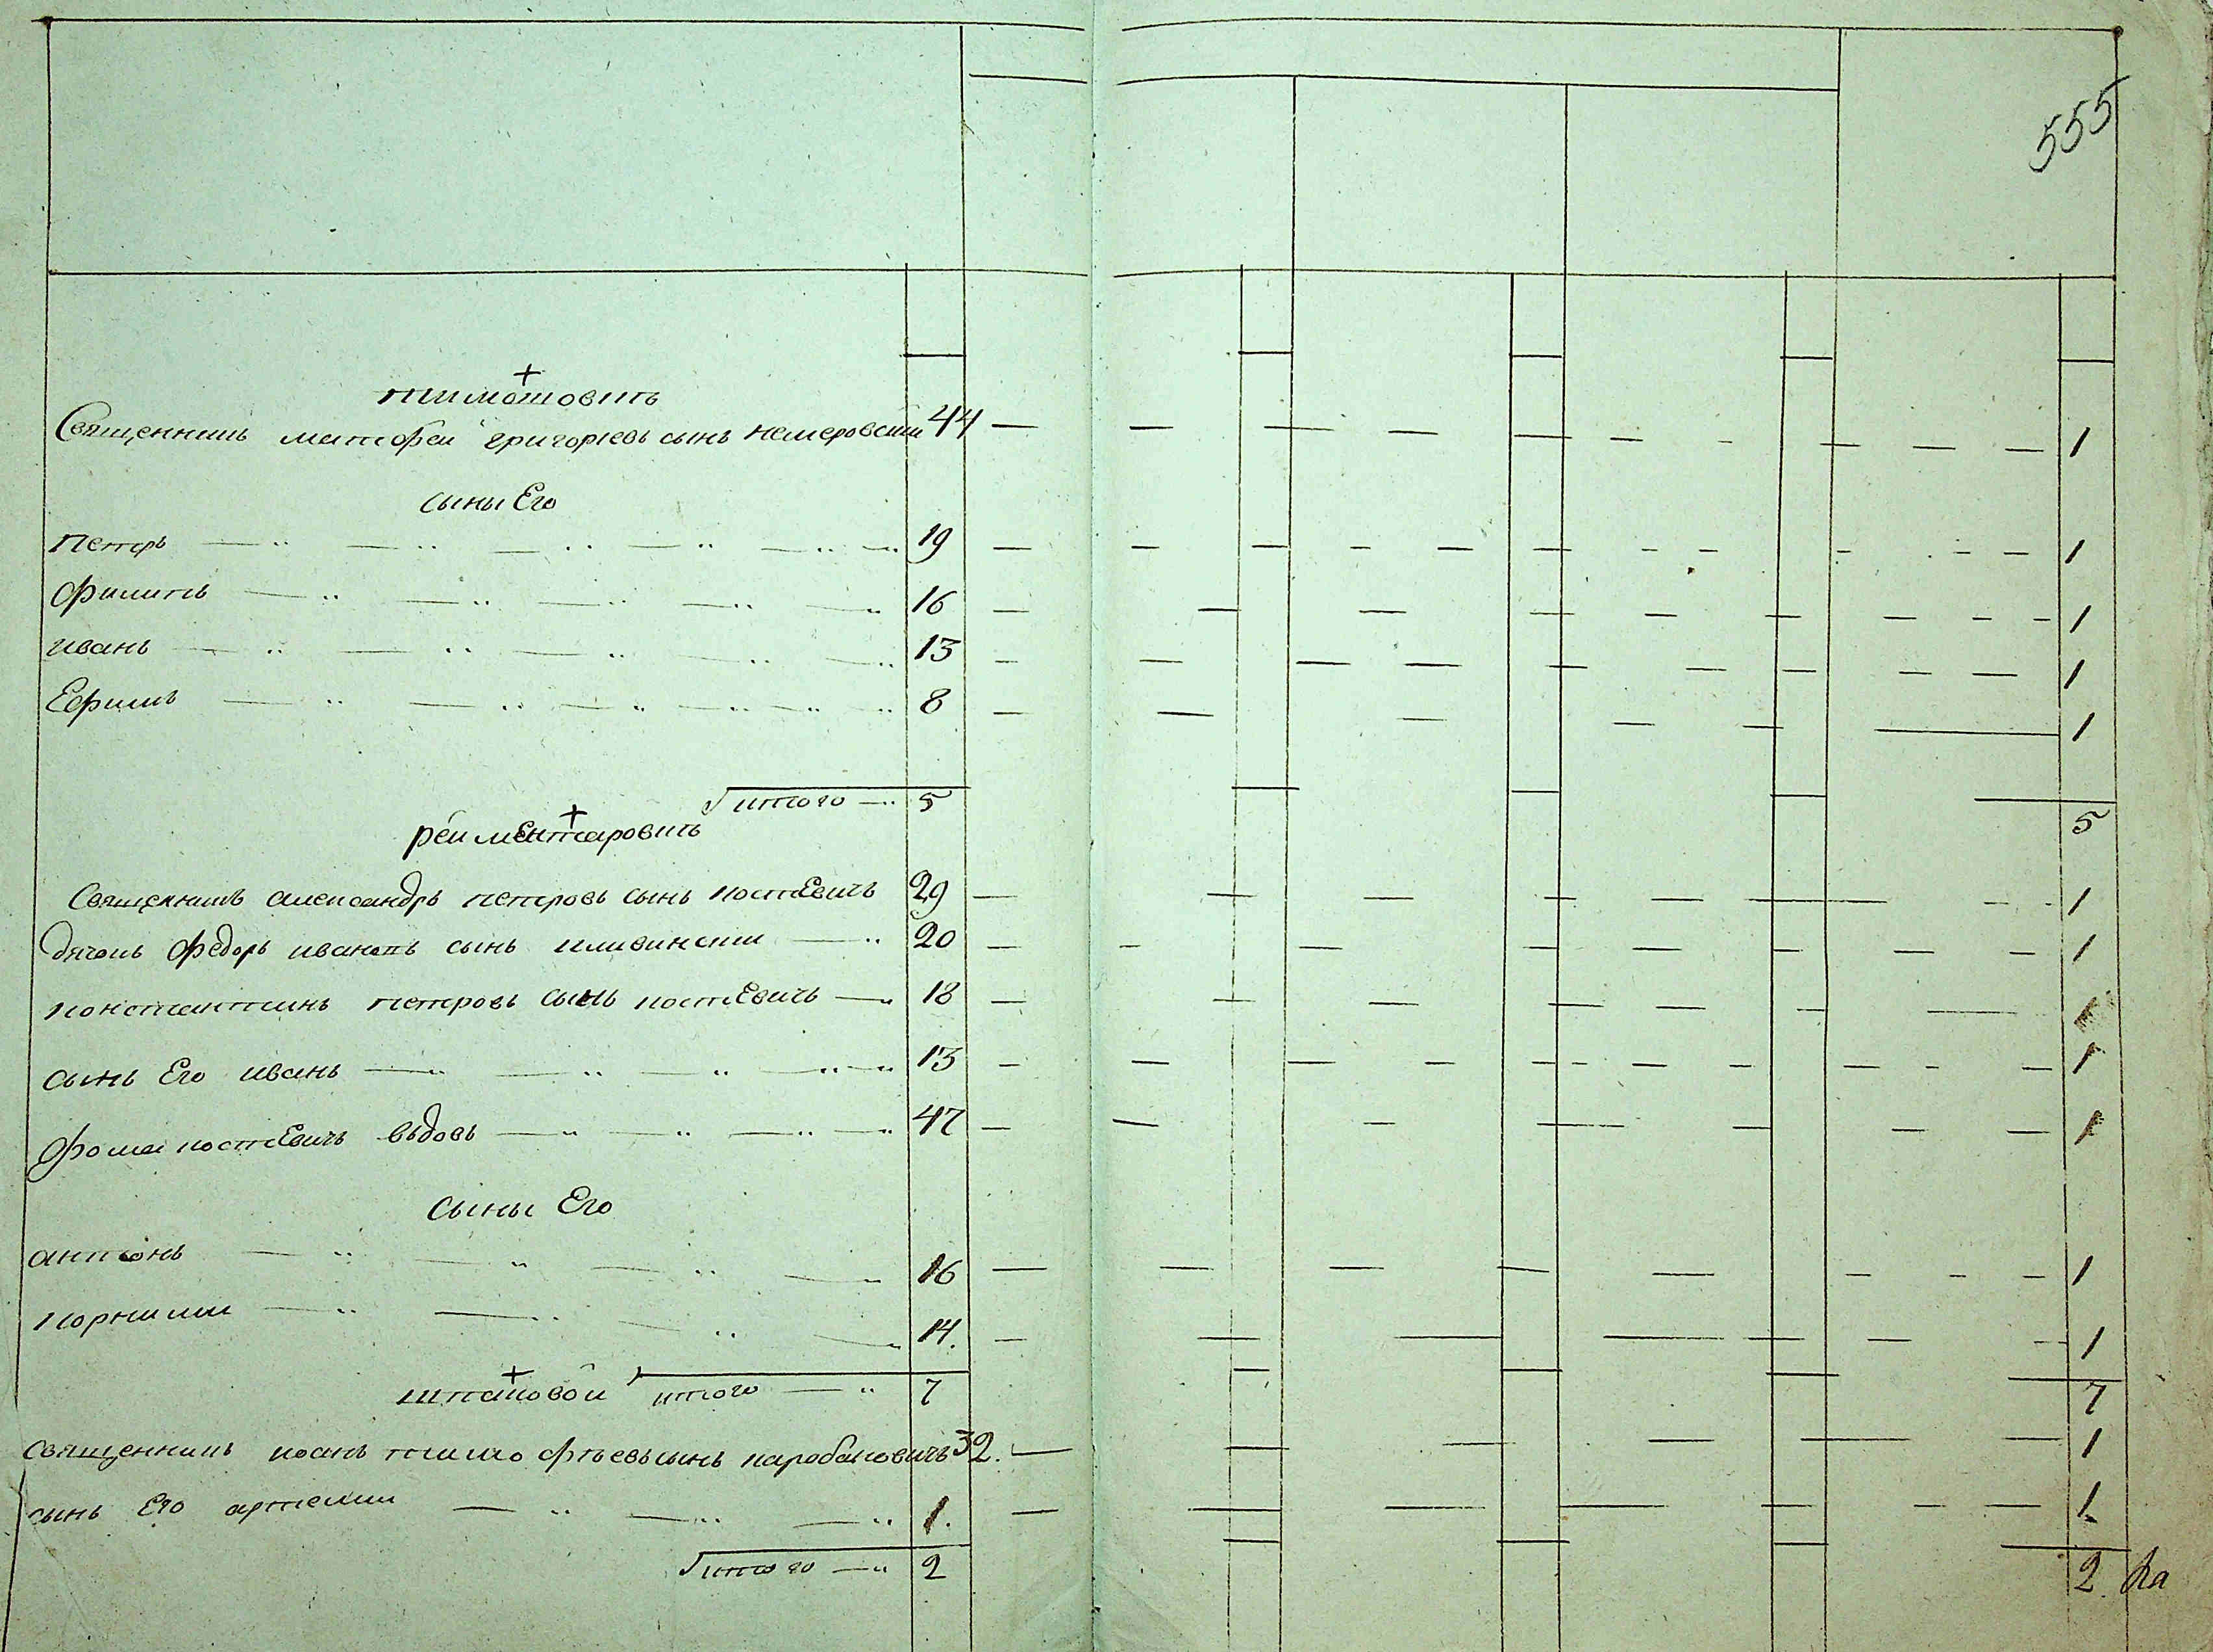 555
тимошовить
Священникъ матфей григорьевъ сынъ немеровский 44 1
сыны Его
Петръ 19 1
Филипъ 16 1
иванъ 13 1
Ефимъ 8 1
итого 5 5
рейментаровить
Священникъ александръ петровъ сынъ костЕвичъ 29 1
дячокъ Федоръ ивановъ сынъ 20 1
константинъ петровъ сынъ костЕвичъ 18 1
сынъ Его иванъ 13 1
Фома костЕвичъ вьдовъ 47 1
сыны Его
антонъ 16 1
корнилий 14. 1
шпаковой итого 7 7
священникъ иоанъ тимофтьевъ сынъ карабановичъ 32. 1
сынъ Его артемий 1. 1
итого 2 2
ка